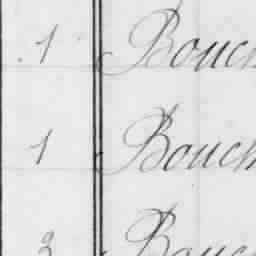 1 Bouch
1 Bouch
3 Bouc